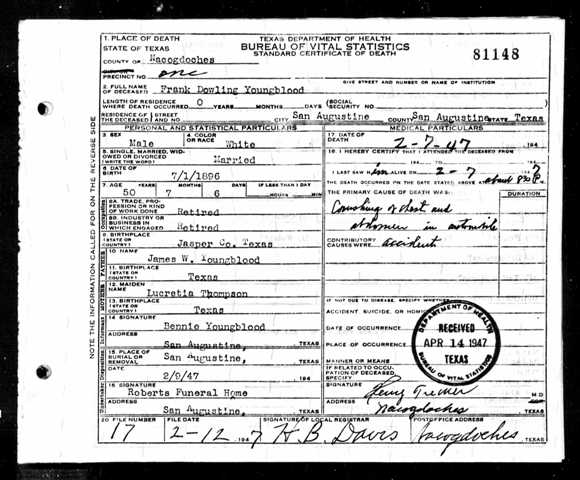 TEXAS DEPARTMENT OF HEALTH
BUREAU OF VITAL STATISTICS
STANDARD CERTIFICATE OF DEATH
81148
1. PLACE OF DEATH
STATE OF TEXAS
COUNTY OF Nacogdoches
PRECINCT NO. one
GIVE STREET AND NUMBER OR NAME OF INSTITUTION
2. FULL NAME OF DECEASED Frank Dowling Youngblood
LENGTH OF RESIDENCE WHERE DEATH OCCURRED 0 YEARS MONTHS DAYS (SOCIAL SECURITY NO.
RESIDENCE OF THE DECEASED STREET AND NO. CITY San Augustine COUNTY San Augustine STATE Texas
PERSONAL AND STATISTICAL PARTICULARS
3. SEX Male
4. COLOR OR RACE White
5. SINGLE, MARRIED, WIDOWED OR DIVORCED (WRITE THE WORD) Married
6. DATE OF BIRTH 7/1/1896
7. AGE YEARS 50 MONTHS 7 DAYS 6 IF LESS THAN 1 DAY HOURS MIN
8A. TRADE, PROFESSION OR KIND OF WORK DONE Retired
8B. INDUSTRY OR BUSINESS IN WHICH ENGAGED Retired
9. BIRTHPLACE (STATE OR COUNTRY) Jasper Co. Texas
FATHER
10 NAME James W. Youngblood
11. BIRTHPLACE (STATE OR COUNTRY) Texas
MOTHER
12. MAIDEN NAME Lucretia Thompson
13. BIRTHPLACE (STATE OR COUNTRY) Texas
14 SIGNATURE Bennie Youngblood
ADDRESS San Augustine, TEXAS
15. PLACE OF BURIAL OR REMOVAL San Augustine, TEXAS
DATE 2/9/47 194
16 SIGNATURE Roberts Funeral Home
ADDRESS San Augustine, TEXAS
MEDICAL PARTICULARS
17 DATE OF DEATH 2-7-47 194
18. I HEREBY CERTIFY THAT I ATTENDED THE DECEASED FROM
I LAST SAW him ALIVE ON 2-7 7
THE DEATH OCCURRED ON THE DATE STATED ABOVE AT about 830 P.
THE PRIMARY CAUSE OF DEATH WAS: DURATION
Crushing of chest and
abdomen in automobile
CONTRIBUTORY CAUSES WERE: accident
IF NOT DUE TO DISEASE, SPECIFY WHETHER:
ACCIDENT, SUICIDE, OR HOM
DATE OF OCCURRENCE
PLACE OF OCCURRENCE
MANNER OR MEANS
IF RELATED TO OCCUPATION OF DECEASED, SPECIFY
SIGNATURE M D
ADDRESS Nacogdoches TEXAS
DEPARTMENT OF HEALTH
RECEIVED
APR 14 1947
TEXAS
BUREAU OF VITAL STATISTICS
20 FILE NUMBER 17
FILE DATE 2-12 1947
SIGNATURE OF LOCAL REGISTRAR H. B. Davis
POSTOFFICE ADDRESS Nacogdoches TEXAS
NOTE THE INFORMATION CALLED FOR ON THE REVERSE SIDE